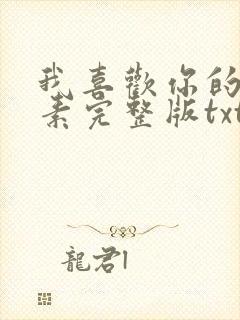 我喜歡你的
素完整版txt
龍君l